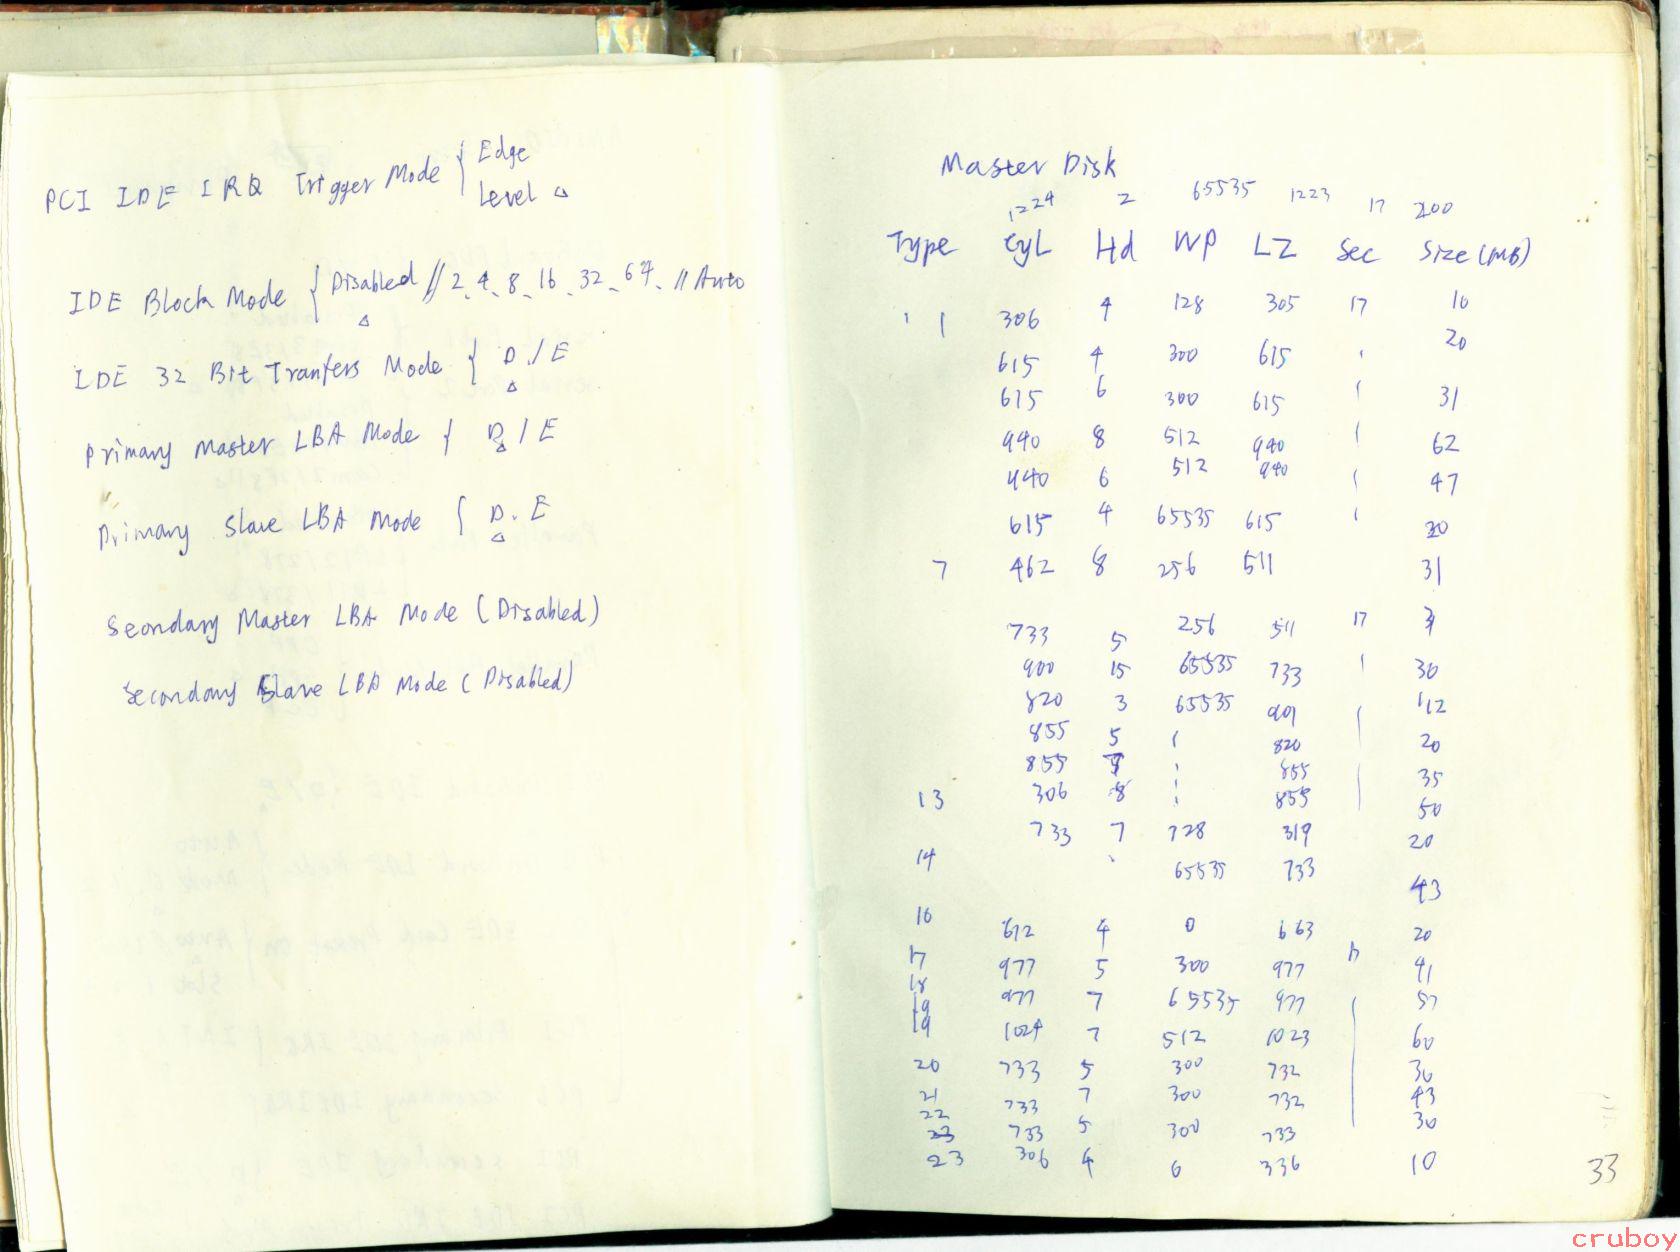 PCI IDE IRQ Trigger Mode { Edge
Level △
IDE Block Mode { Disabled // 2, 4, 8, 16, 32, 64, // Auto
△
IDE 32 Bit Tranfers Mode { D / E
△
Primary Master LBA Mode { D / E
△
Primary Slave LBA Mode { D. E
△
Seondary Master LBA Mode ( Disabled)
Secondary Slave LBA Mode ( Disabled)
Master Disk
1224 2 65535 1223 17 200
Type CyL Hd WP LZ Sec Size (MB)
1 306 4 128 305 17 10
615 4 300 615 20
615 6 300 615 31
940 8 512 940 62
940 6 512 940 47
615 4 65535 615 20
7 462 8 256 511 31
733 5 256 511 17
900 15 65535 733 30
820 3 65535 901 112
855 5 820 20
855 855 35
13 306 8 855 50
733 7 728 319 20
14 65535 733 43
16 612 4 0 663 20
17 977 5 300 977 17 41
18 977 7 65535 977 57
19 1024 7 512 1023 60
20 733 5 300 732 30
21 733 7 300 732 43
22 733 5 300 733 30
23 306 4 0 336 10
33
cruboy